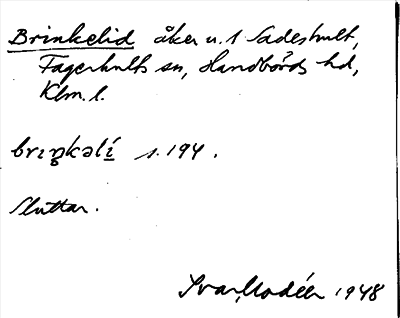 Brinkelid åker u. 1 Sadeshult,
Fagerhults sn, Handbörds hd,
Klm. l.
brıŋkəlí s. 194.
Sluttar.
Ivar Modéer 1948